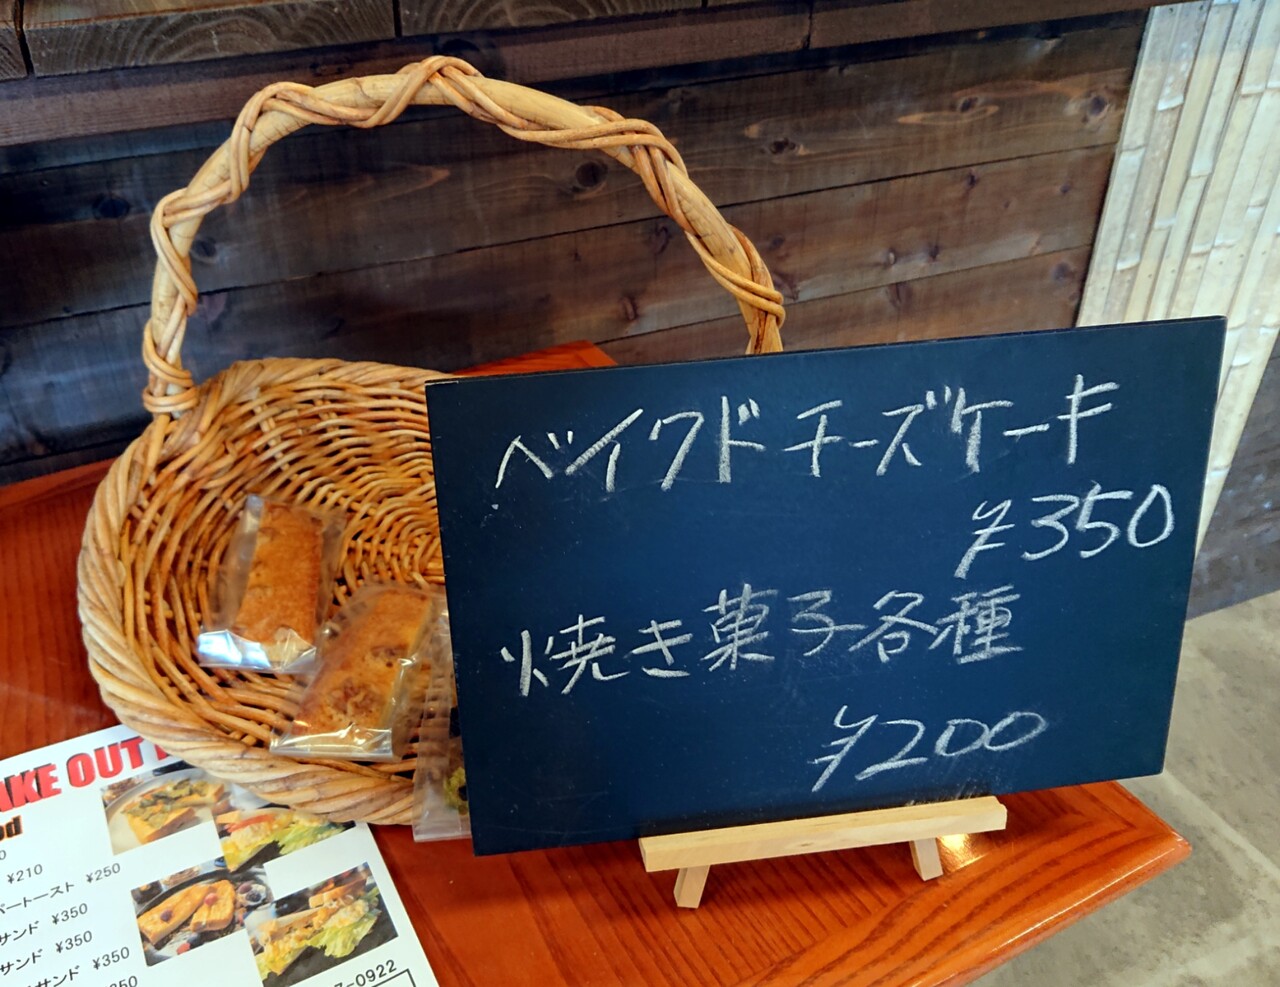 ベイクドチーズケーキ
¥350
焼き菓子各種
¥200
AKE OUT
od
0
¥210
バートースト ¥250
サンド ¥350
サンド ¥350
サンド ¥350
350
7-0922